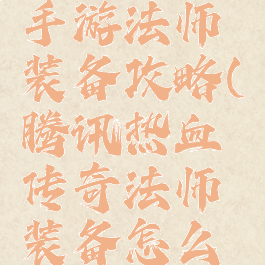 手游法师
装备攻略(
腾讯热血
传奇法师
装备怎么